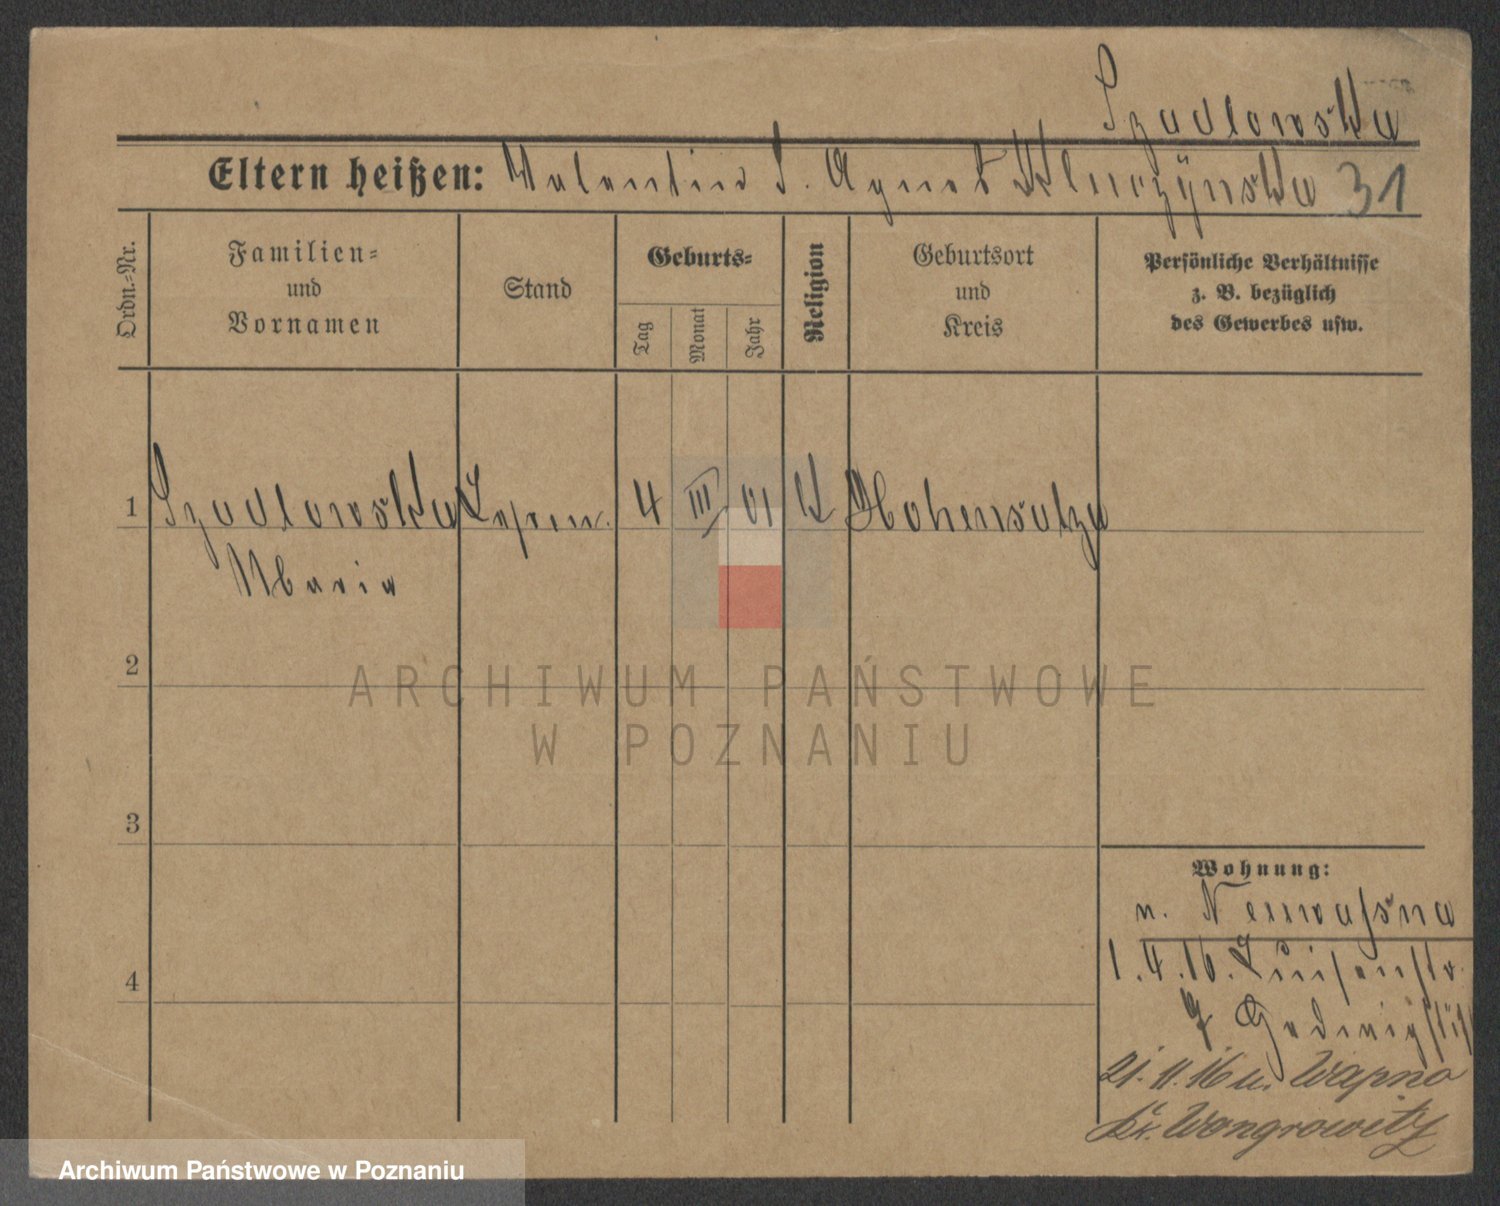 Szadlowska
Eltern heißen: Valentin S. Agnes Kluczÿnska 31
Ordn.-Nr.
Familien-
und
Vornamen
Stand
Geburts-
Tag
Monat
Jahr
Religion
Geburtsort
und
Kreis
Persönliche Verhältnisse
z. B. bezüglich
des Gewerbes usw.
1 Szadlowska 4 III 01 K Hohensalza
Maria
2
3
4
Wohnung:
n.
1.4.16. Luisenstr.
7
21.11.16 n. Wapno
Kr. Wongrowitz
ARCHIWUM PAŃSTWOWE
W POZNANIU
Archiwum Państwowe w Poznaniu